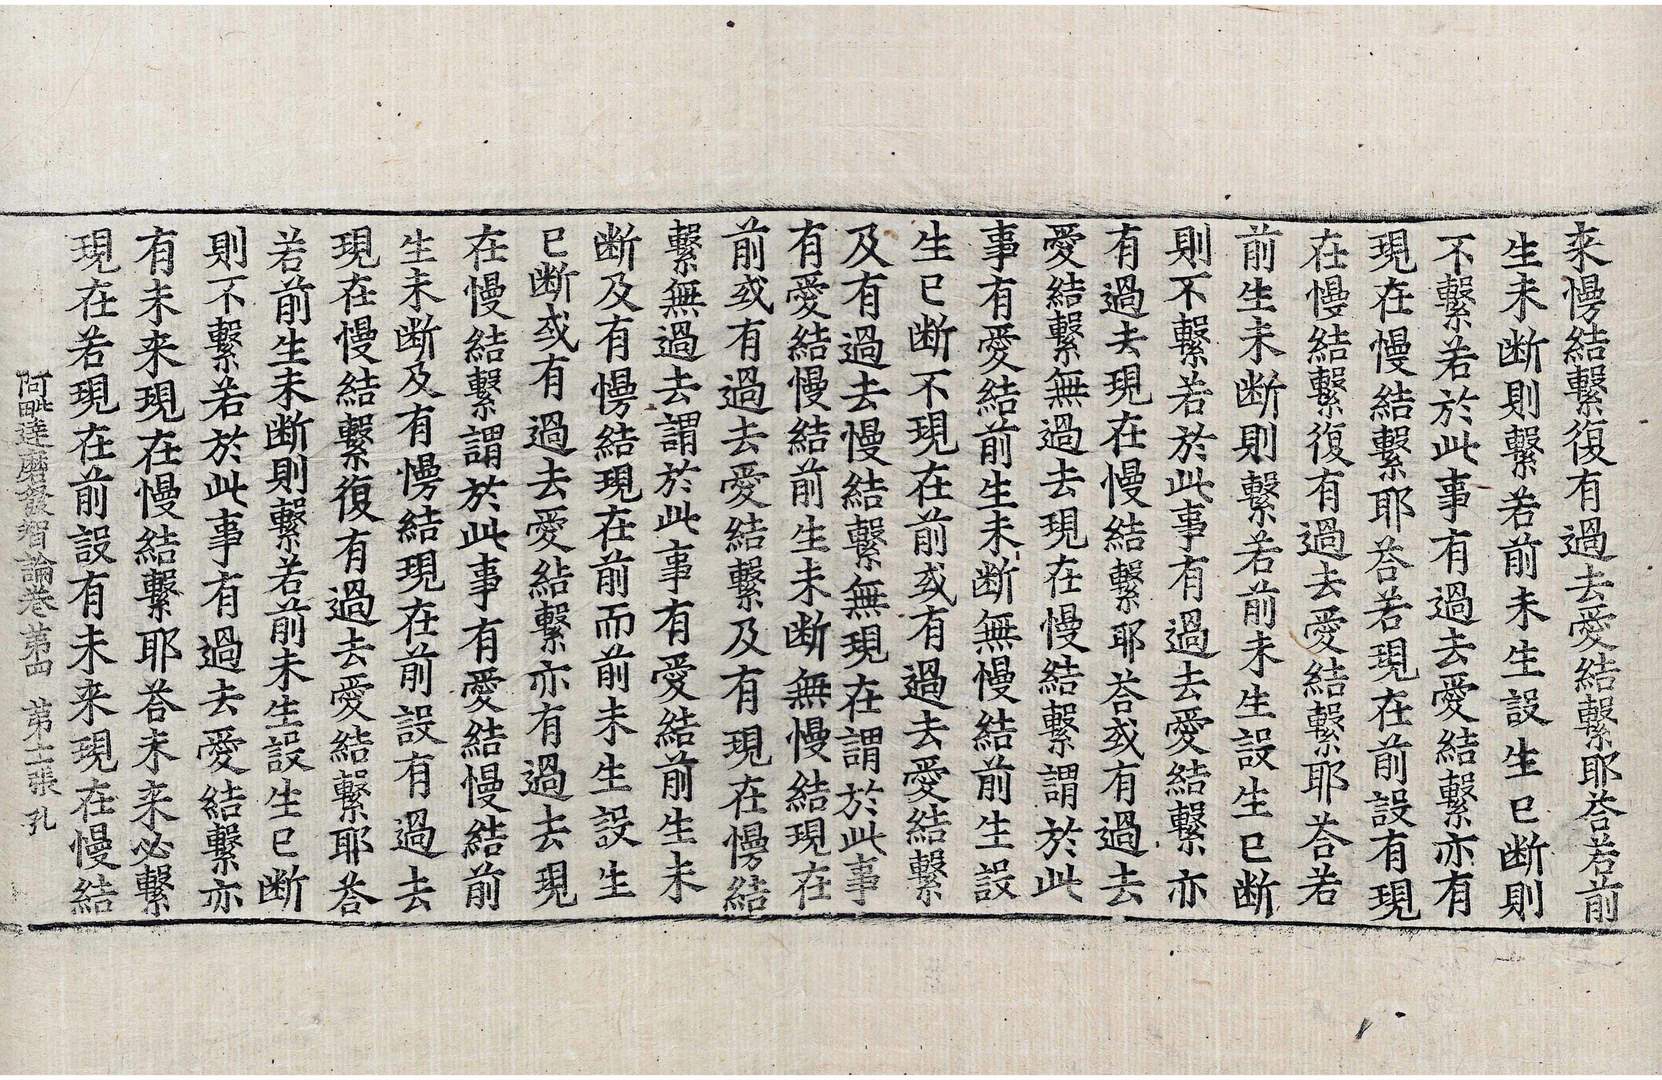 来慢結繫復有過去愛結繫耶荅若前
生未断則繫若前未生設生已断則
不繫若於此事有過去愛結繫亦有
現在慢結繫耶荅若現在前設有現
在慢結繫復有過去愛結繫耶荅若
前生未断則繫若前未生設生已断
則不繫若於此事有過去愛結繫亦
有過去現在慢結繫耶荅或有過去
愛結繫無過去現在慢結繫謂於此
事有愛結前生未断無慢結前生設
生已断不現在前或有過去愛結繫
及有過去慢結繫無現在謂於此事
有愛結慢結前生未断無慢結現在
前或有過去愛結繫及有現在慢結
繫無過去謂於此事有愛結前生未
断及有慢結現在前而前未生設生
已断或有過去愛結繫亦有過去現
在慢結繫謂於此事有愛結慢結前
生未断及有慢結現在前設有過去
現在慢結繫復有過去愛結繫耶荅
若前生未断則繫若前未生設生已断
則不繫若於此事有過去愛結繫亦
有未来現在慢結繫耶荅未来必繫
現在若現在前設有未来現在慢結
阿毗達磨發智論卷第四 第十二張 孔